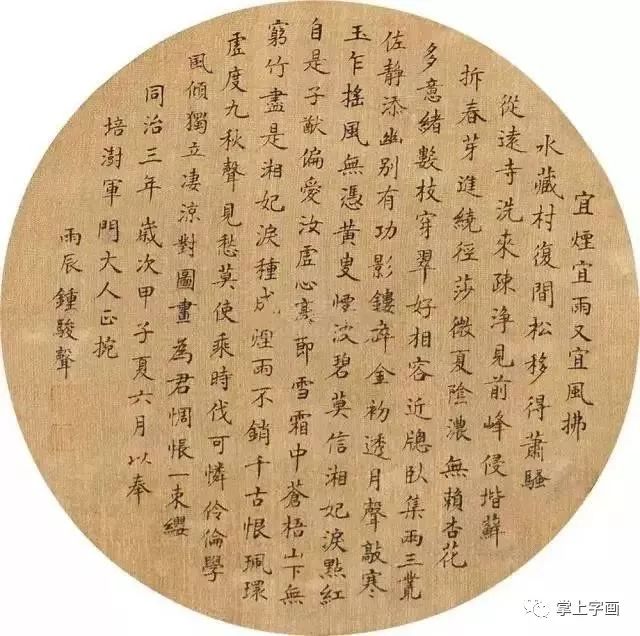 宜煙宜雨又宜風拂
水藏村復間松移得蕭騷
從遠寺洗來疎淨見前峰侵堦蘚
拆春芽迸繞徑莎微夏陰濃無賴杏花
多意緒數枝穿翠好相容近牕臥集兩三叢
佐靜添幽別有功影鏤碎金初透月聲敲寒
玉乍搖風無憑黃叟煙波碧莫信湘妃淚點紅
自是子猷偏愛汝虛心高節雪霜中蒼梧山下無
窮竹盡是湘妃淚種成煙雨不銷千古恨珮環
虛度九秋聲見愁莫使乘時伐可憐伶倫學
風傾獨立淒涼對圖畫為君惆悵一束纓
同治三年歲次甲子夏六月以奉
培澍軍門大人正捥
雨辰鍾駿聲
掌上字画